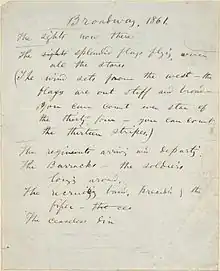 Broadway, 1861.
The sights now there
The sights splendid flags flying, over
all the stores
(The wind sets from the west – the
flags are out stiff and broad –
you can count every star of
the thirty four – you can count
the thirteen stripes.)
The regiments arriving and departing,
The Barracks – the soldiers
lounging around,
The recruiting band, preceded by the
fifer – 
The ceaseless din